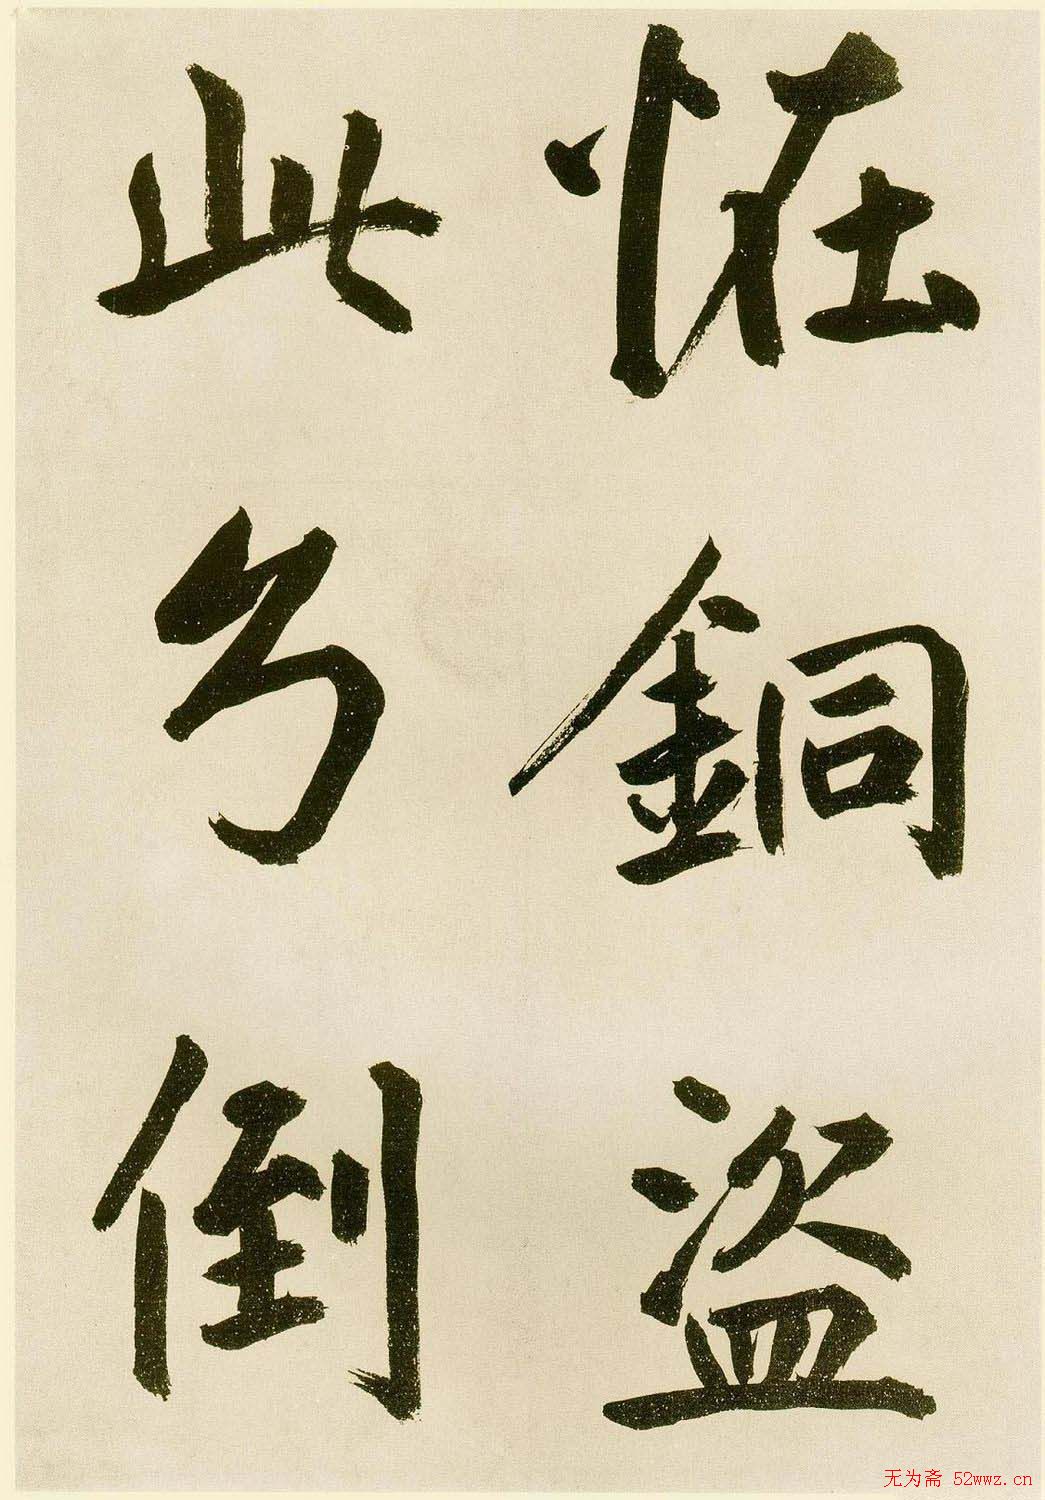 恠銅盜
此乃倒
无为斋 52wwz.cn